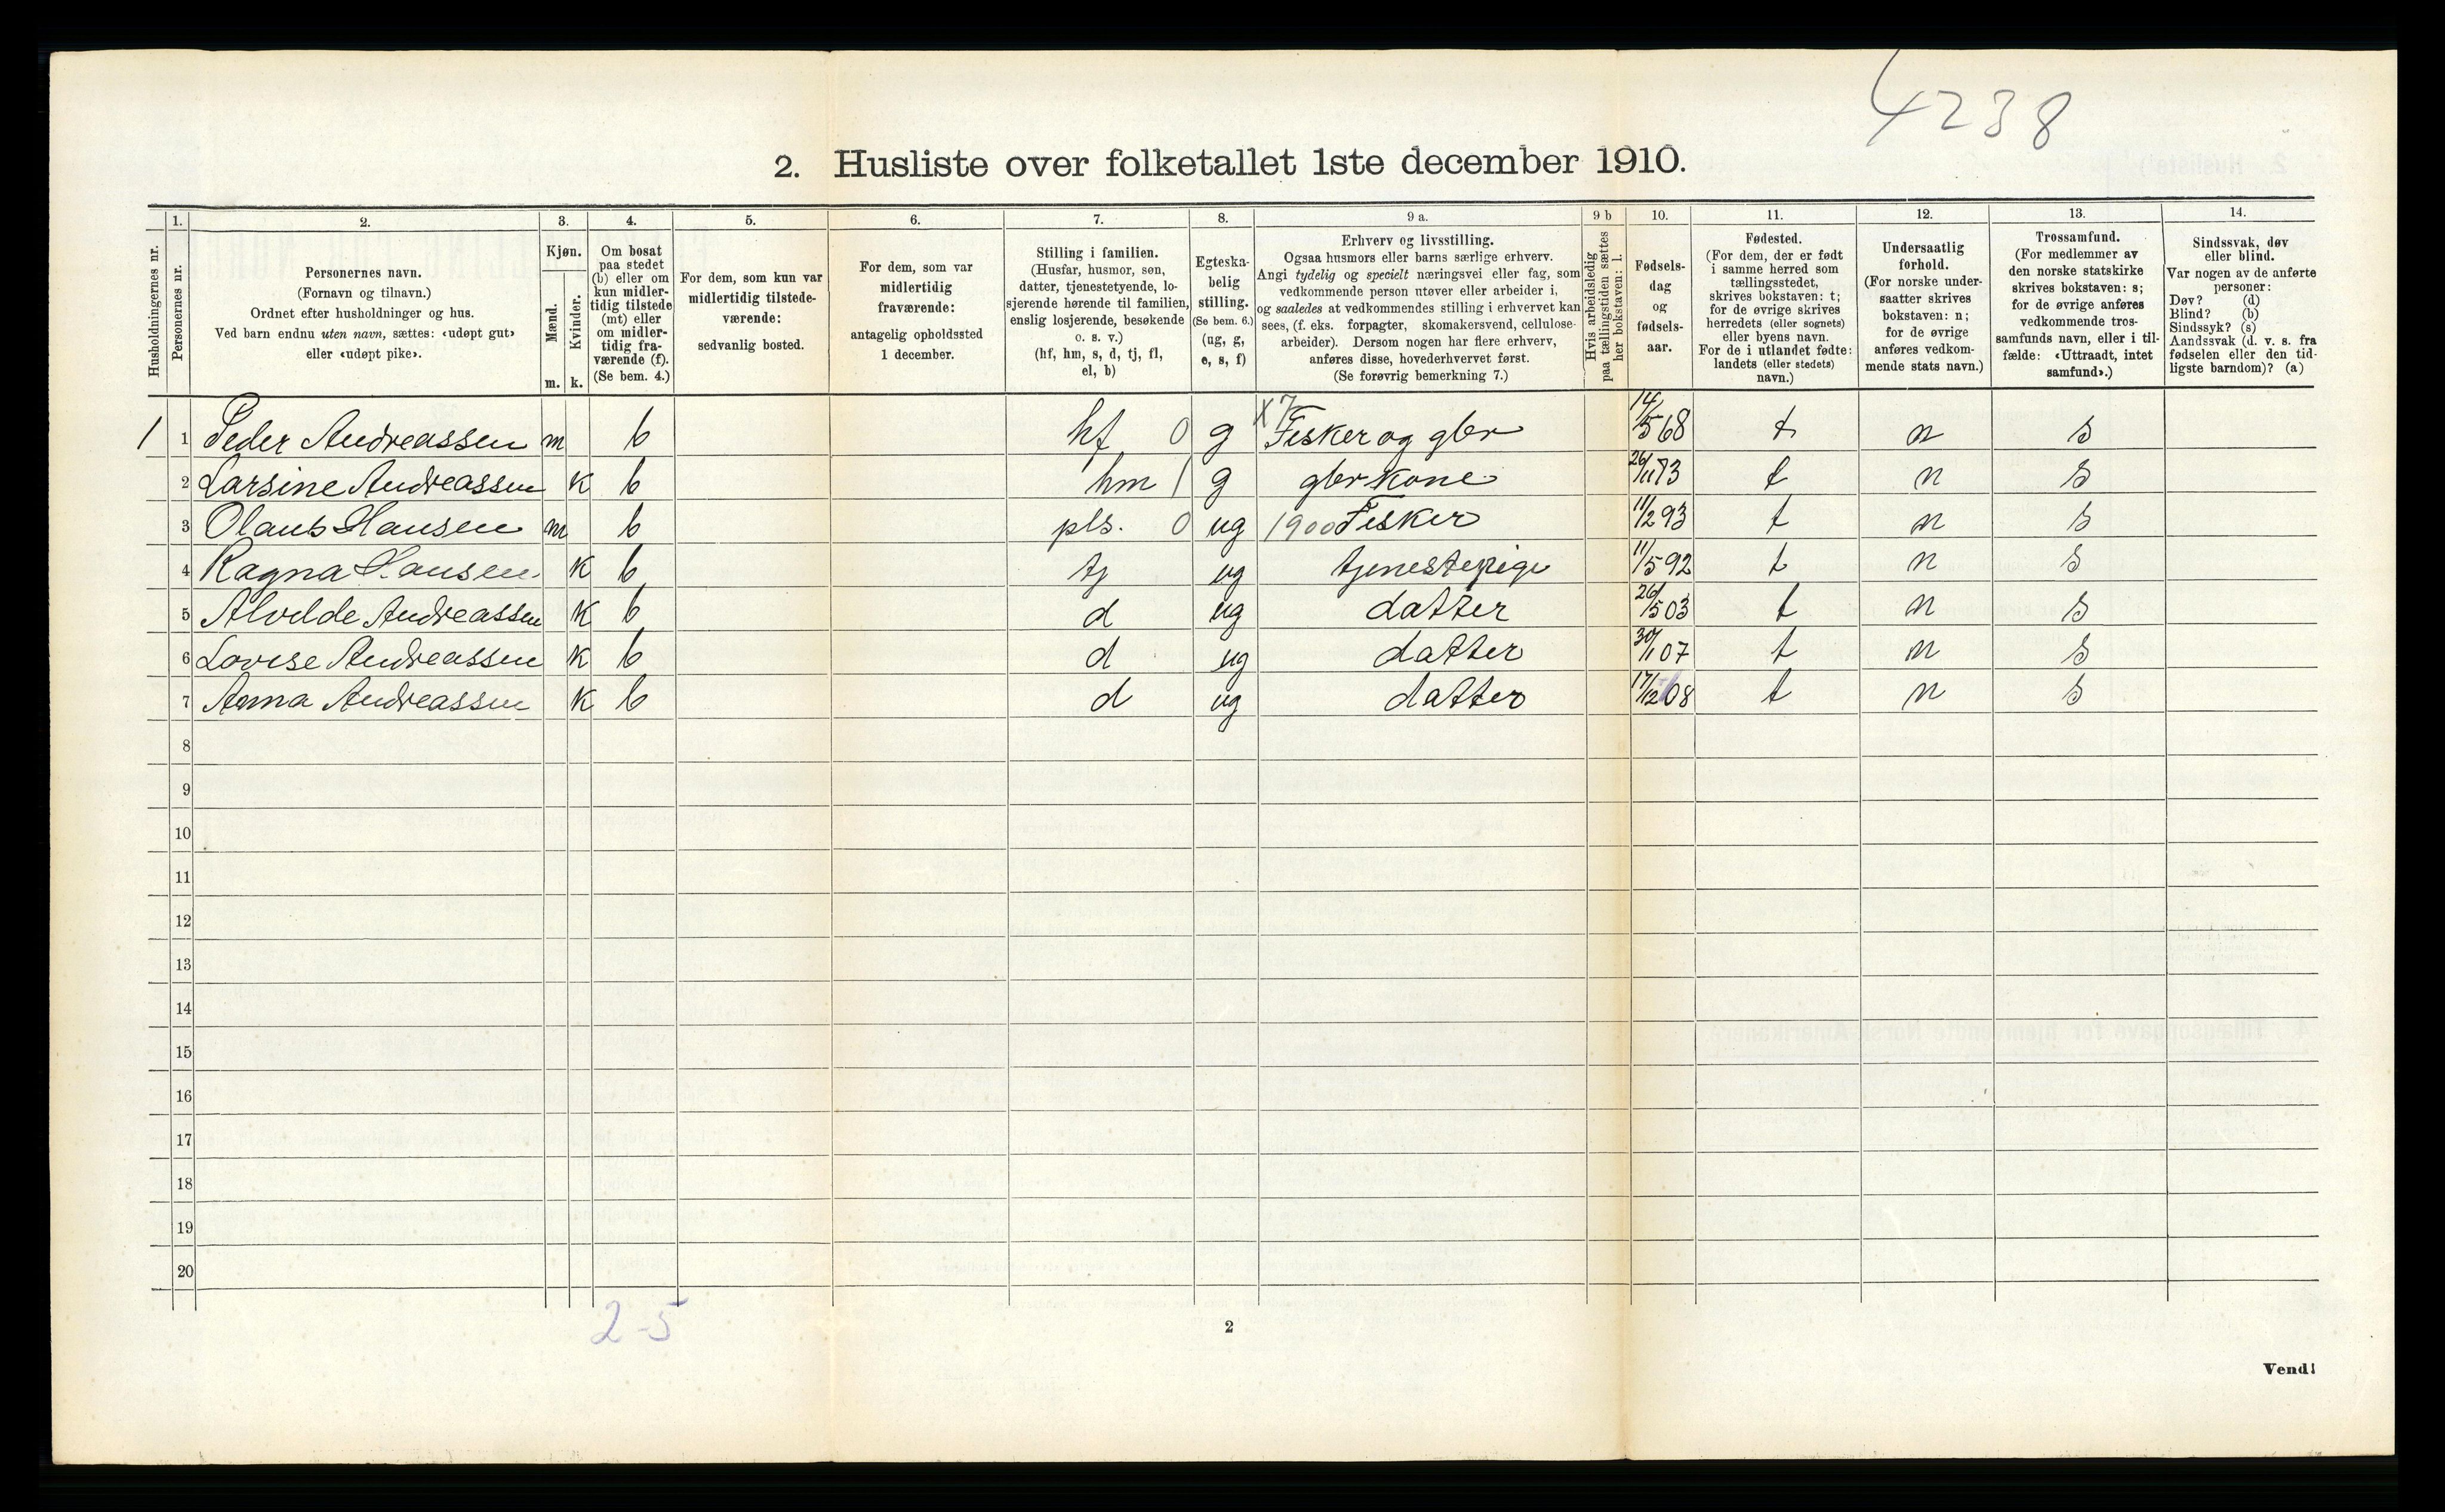 4238
2. Husliste over folketallet 1ste december 1910.
Husholdningernes nr.
1. Personernes nr.
2. Personernes navn.
(Fornavn og tilnavn.)
Ordnet efter husholdninger og hus.
Ved barn endnu uten navn, sættes: «udøpt gut»
eller «udøpt pike».
3. Kjøn.
Mænd. m.
Kvinder. k.
4. Om bosat
paa stedet
(b) eller om
kun midler-
tidig tilstede
(mt) eller
om midler-
tidig fra-
værende (f).
(Se bem. 4.)
5. For dem, som kun var
midlertidig tilstede-
værende:
sedvanlig bosted.
6. For dem, som var
midlertidig
fraværende:
antagelig opholdssted
1 december.
7. Stilling i familien.
(Husfar, husmor, søn,
datter, tjenestetyende, lo-
sjerende hørende til familien,
enslig losjerende, besøkende
o. s. v.)
(hf, hm, s, d, tj, fl,
el, b)
8. Egteska-
belig
stilling.
(Se bem. 6.)
(ug, g,
e, s, f)
9 a. Erhverv og livsstilling.
Ogsaa husmors eller barns særlige erhverv.
Angi tydelig og specielt næringsvei eller fag, som
vedkommende person utøver eller arbeider i,
og saaledes at vedkommendes stilling i erhvervet kan
sees, (f. eks. forpagter, skomakersvend, cellulose-
arbeider). Dersom nogen har flere erhverv,
anføres disse, hovederhvervet først.
(Se forøvrig bemerkning 7.)
9 b Hvis arbeidsledig
paa tællingstiden sættes
her bokstaven: l.
10. Fødsels-
dag
og
fødsels-
aar.
11. Fødested.
(For dem, der er født
i samme herred som
tællingsstedet,
skrives bokstaven: t;
for de øvrige skrives
herredets (eller sognets)
eller byens navn.
For de i utlandet fødte:
landets (eller stedets)
navn.)
12. Undersaatlig
forhold.
(For norske under-
saatter skrives
bokstaven: n;
for de øvrige
anføres vedkom-
mende stats navn.)
13. Trossamfund.
(For medlemmer av
den norske statskirke
skrives bokstaven: s;
for de øvrige anføres
vedkommende tros-
samfunds navn, eller i til-
fælde: «Uttraadt, intet
samfund».)
14. Sindssvak, døv
eller blind.
Var nogen av de anførte
personer:
Døv? (d)
Blind? (b)
Sindssyk? (s)
Aandssvak (d. v. s. fra
fødselen eller den tid-
ligste barndom)? (a)
1 1 Peder Andreassen m b hf 0 g x7 Fisker og gbr 14/5 68 t n s
2 Larsine Andreassen k b hm 1 g gbr kone 26/11 73 t n s
3 Olaus Hansen m b pls. 0 ug 1900 Fisker 11/2 93 t n s
4 Ragna Hansen k b tj ug tjenestepige 11/5 92 t n s
5 Alvilde Andreassen k b d ug datter 26/5 03 t n s
6 Lovise Andreassen k b d ug datter 30/1 07 t n s
7 Anna Andreassen k b d ug datter 17/12 08 t n s
8
9
10
11
12
13
14
15
16
17
18
19
20
2-5
2
Vend!